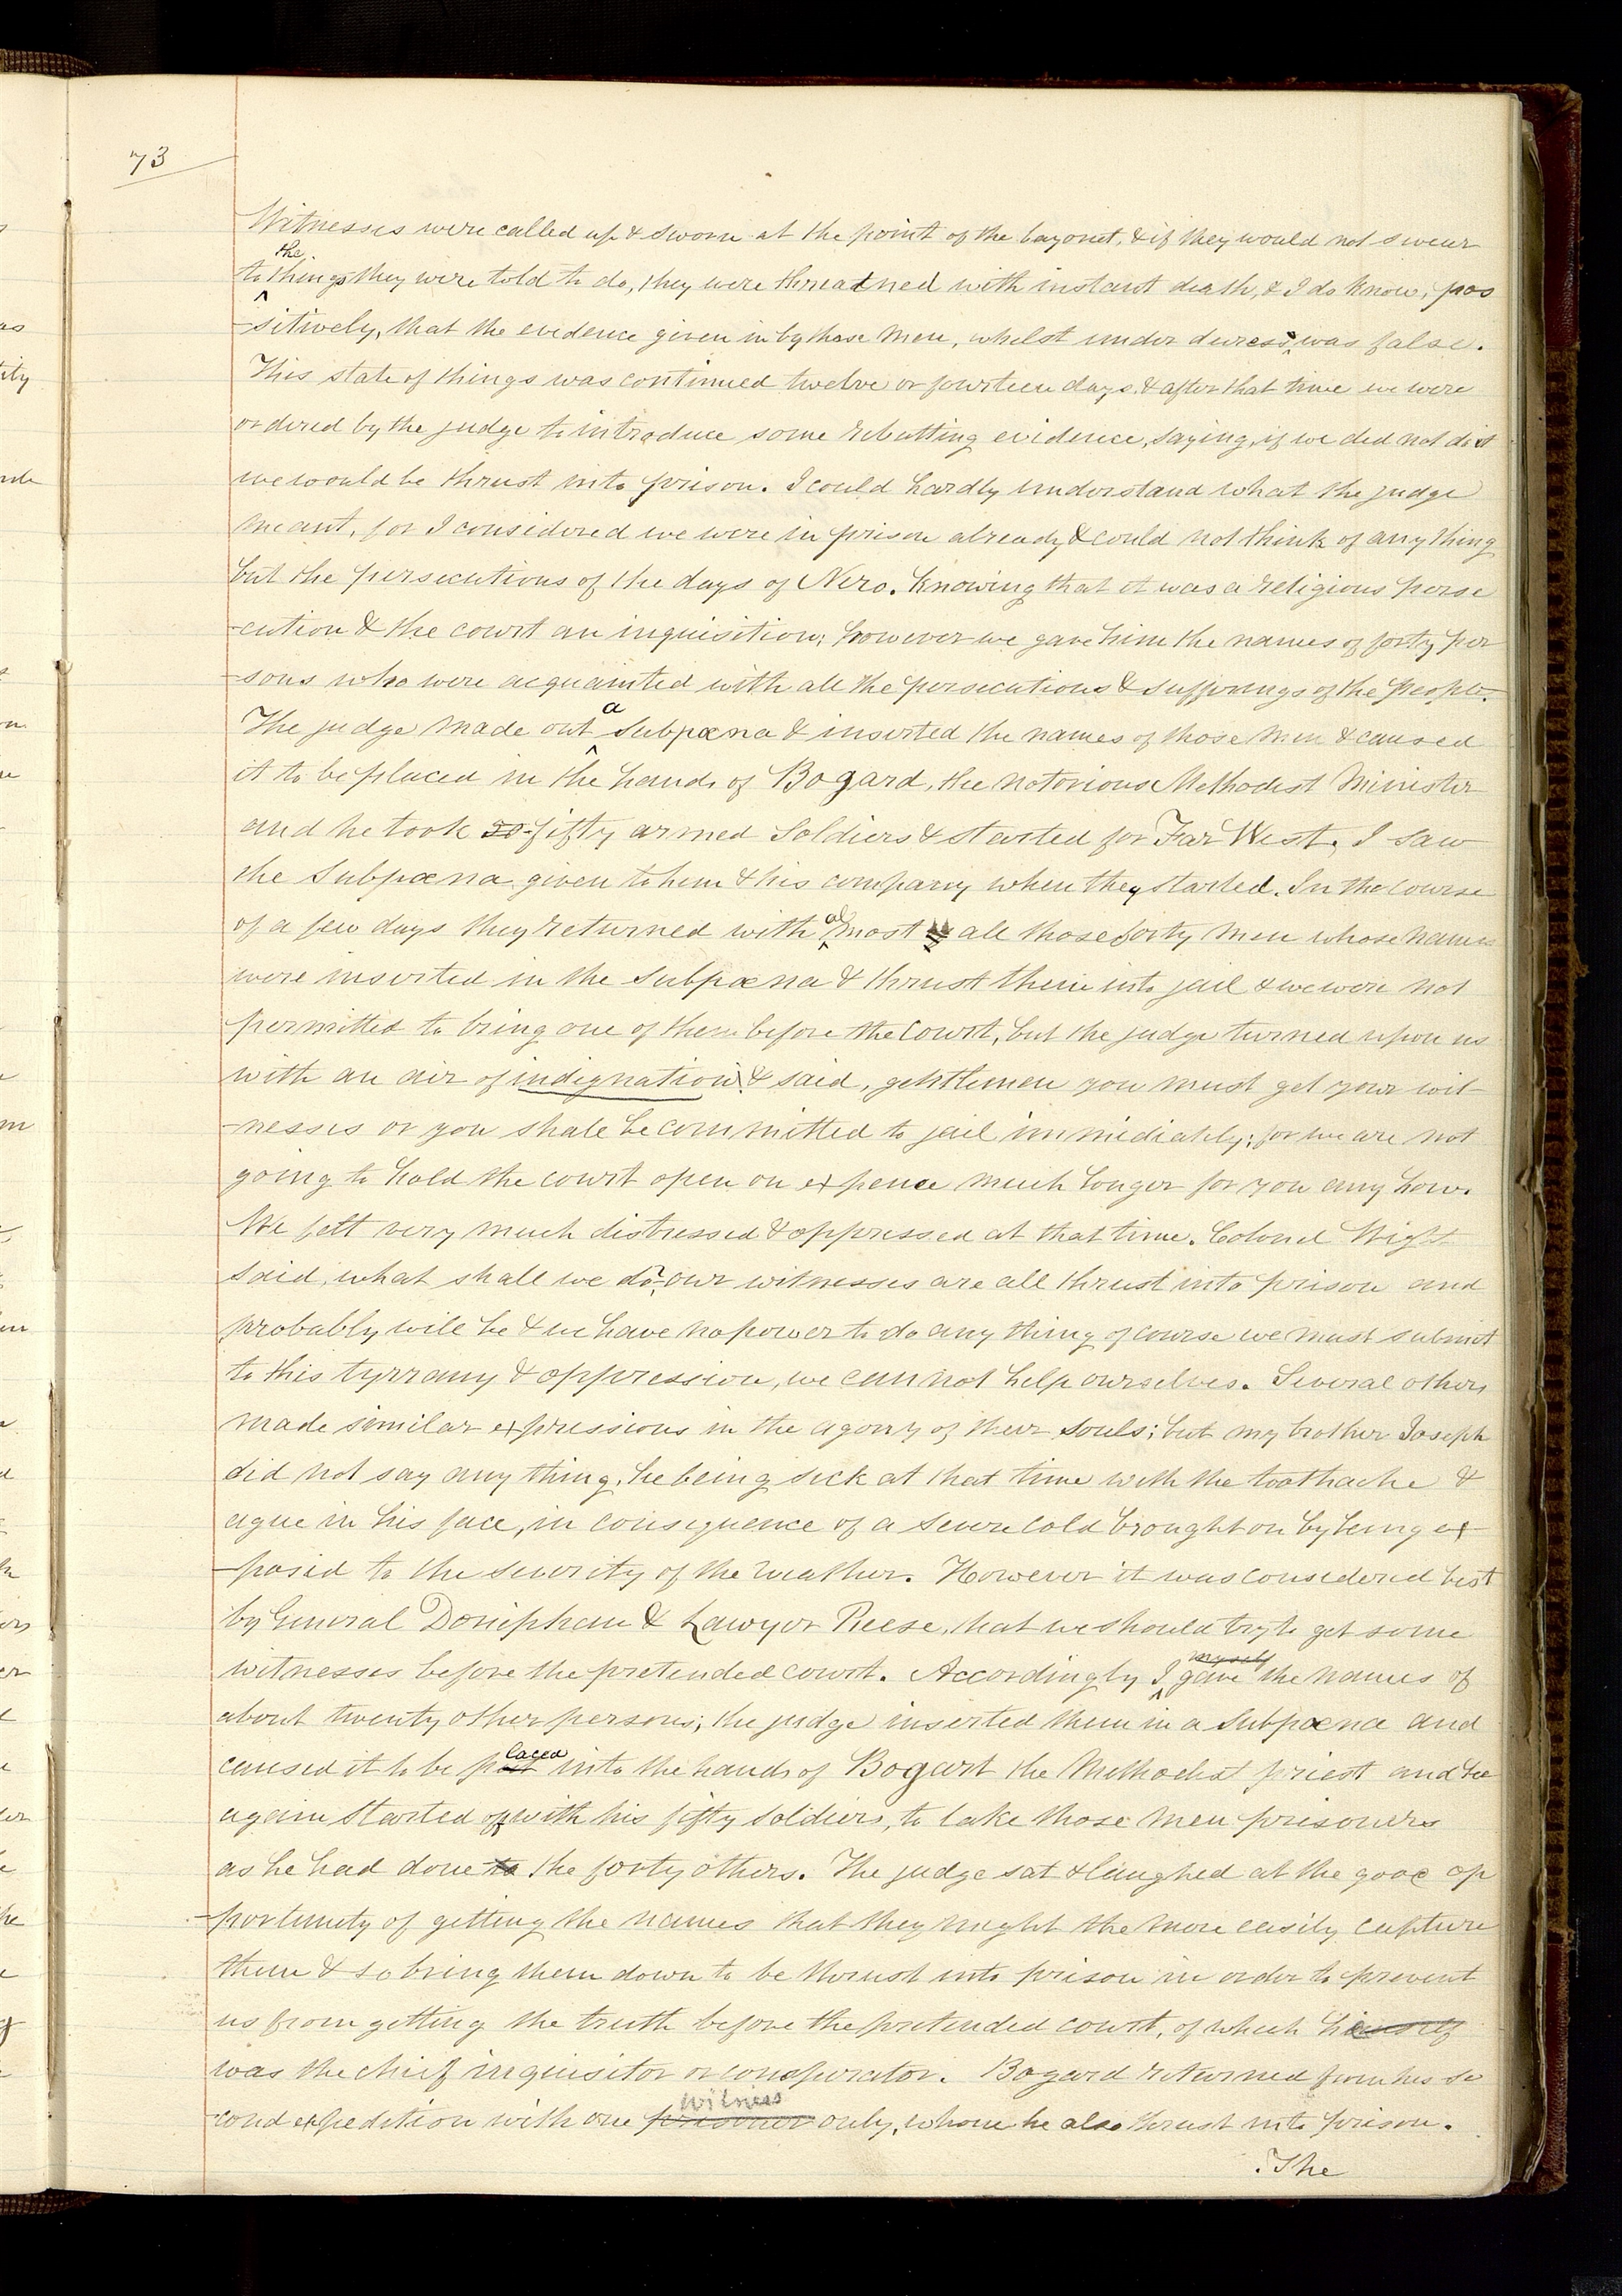 73
Witnesses were called up & sworn at the point of the bayonet, & if they would not swear
the
to things they were told to do, they were threatned with instant death, & I do know, pos
-sitively, that the evidence given in by those men, whilst under duress was false.
This state of things was continued twelve or fourteen days, & after that time we were
ordered by the judge to introduce some rebutting evidence, saying, if we did not do it
we would be thrust into prison. I could hardly understand what the judge
meant, for I considered we were in prison already & could not think of any thing
but the persecutions of the days of Nero. Knowing that it was a religious perse
-cution & the court an inquisition; however we gave him the names of forty per
-sons who were acquainted with all the persecutions & sufferings of the people.
a
The judge made out Subpœna & inserted the names of those men & caused
it to be placed in the hands of Bogard, the notorious Methodist Minister
and he took 50 fifty armed Soldiers & started for Far West. I saw
the Subpœna given to him & his company when they started. In the course
al
of a few days they returned with most all those forty men whose names
were inserted in the Subpœna & thrust them into jail & we were not
permitted to bring one of them before the court, but the judge turned upon us
with an air of indignation & said, gentlemen you must get your wit
-nesses or you shall be committed to jail immediately; for we are not
going to hold the court open on expence much longer for you any how.
We felt very much distressed & oppressed at that time. Colonel Wight
said, what shall we do? our witnesses are all thrust into prison and
probably will be & we have no power to do any thing of course we must submit
to this tyrrany & oppression, we cannot help ourselves. Several others
made similar expressions in the agony of their souls; but my brother Joseph
did not say any thing, he being sick at that time with the toothache &
ague in his face, in consequence of a severe cold brought on by being ex
-posed to the severity of the weather. However it was considered best
by General Doniephan & Lawyer Reese, that we should try to get some
myself
witnesses before the pretended court. Accordingly I gave the names of
about twenty other persons; the judge inserted them in a Subpœna and
laced
caused it to be put into the hands of Bogart the Methodist priest and he
again started off with his fifty soldiers, to take those men prisoners
as he had done to the forty others. The judge sat & laughed at the good op
-portunity of getting the names that they might the more easily capture
them & so bring them down to be thrust into prison in order to prevent
us from getting the truth before the pretended court, of which himself
was the chief inquisitor or conspirator. Bogard returned from his se
witness
-cond expedition with one prisoner only, whom he also thrust into prison.
The